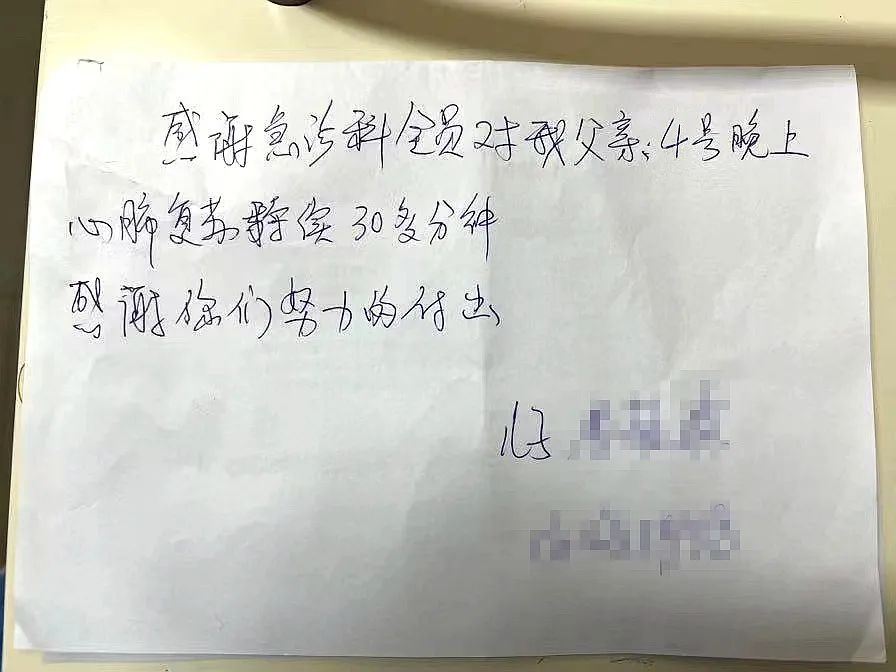 感谢急诊科全员对我父亲:4号晚上
心肺复苏持续30多分钟
感谢你们努力的付出
儿子